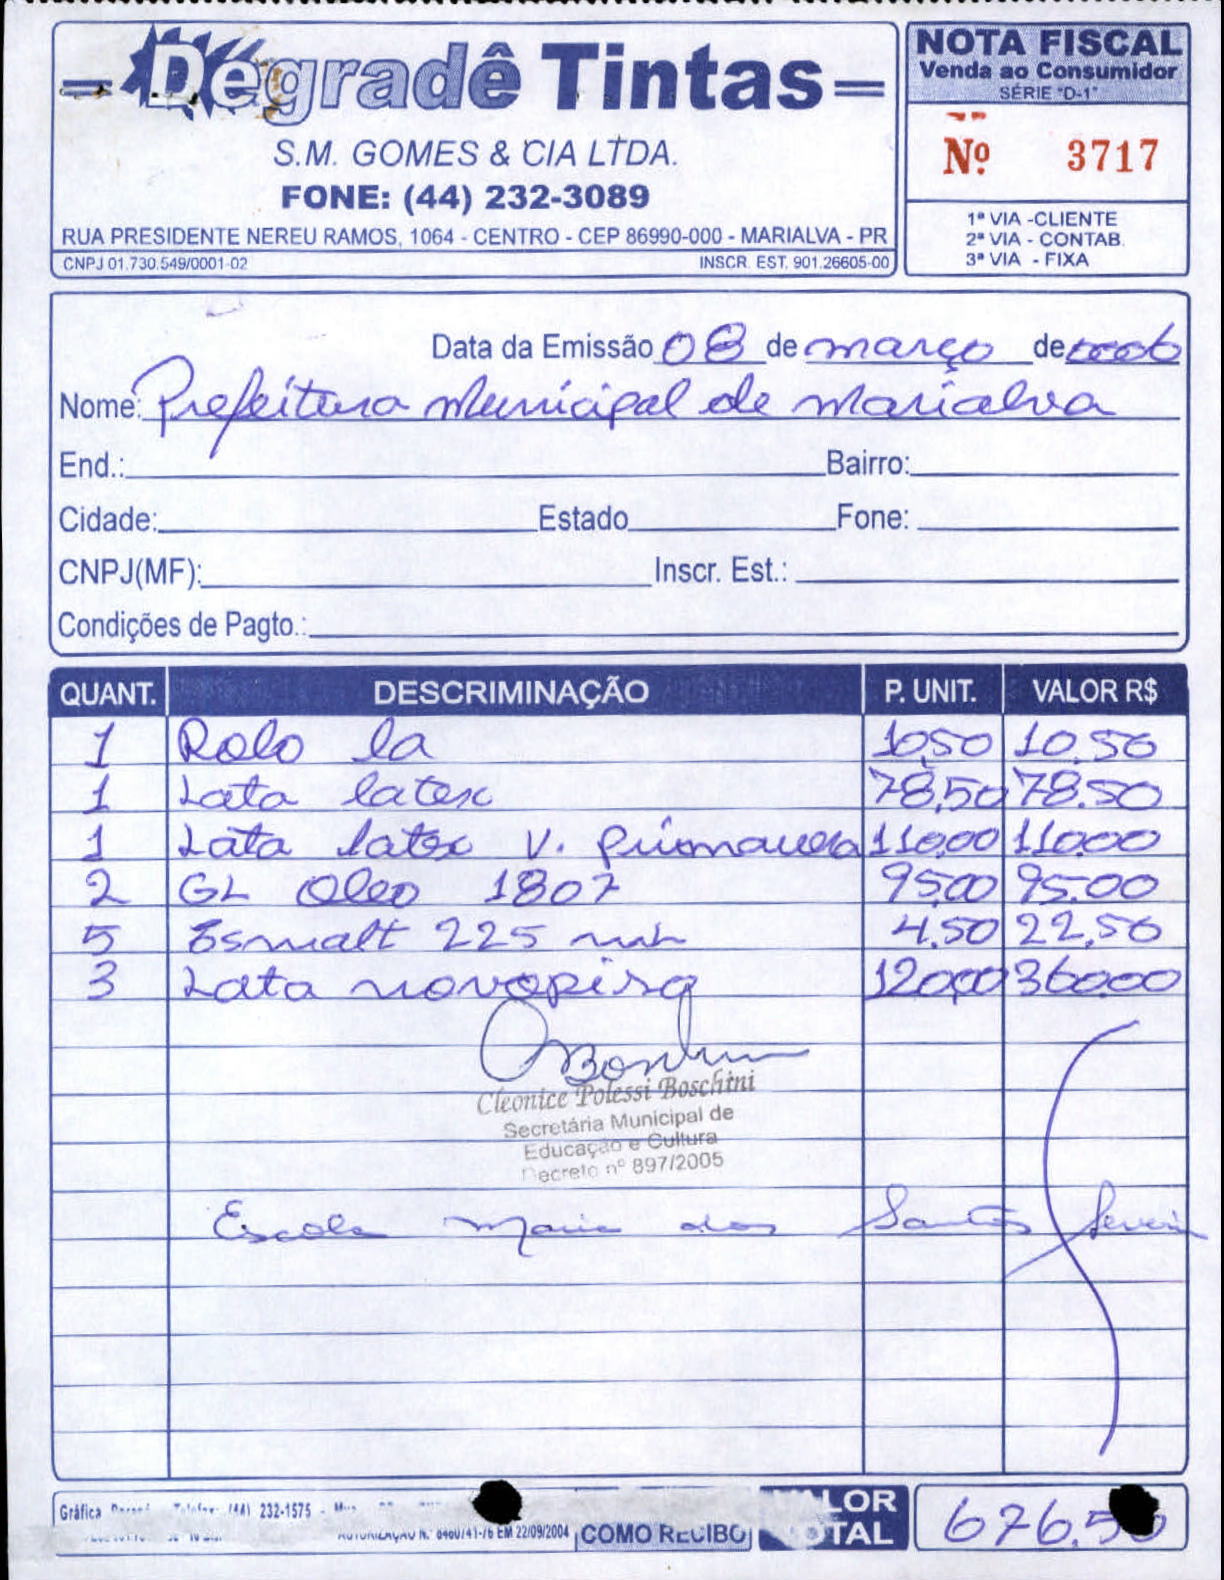 Degradê Tintas
S.M. GOMES & CIA LTDA.
FONE: (44) 232-3089
RUA PRESIDENTE NEREU RAMOS, 1064 - CENTRO - CEP 86990-000 - MARIALVA - PR
CNPJ 01.730.549/0001-02 INSCR. EST. 901.26605-00
NOTA FISCAL
Venda ao Consumidor
SÉRIE "D-1"
Nº 3717
1ª VIA -CLIENTE
2ª VIA - CONTAB.
3ª VIA - FIXA
Data da Emissão 08 de março de
Nome: Prefeitura Municipal de Marialva
End.: Bairro:
Cidade: Estado Fone:
CNPJ(MF): Inscr. Est.:
Condições de Pagto.:
QUANT. DESCRIMINAÇÃO P. UNIT. VALOR R$
1 Rolo la 10,50 10.50
1 Lata latex 78,50 78.50
1 Lata latex V. primavera 110,00 110,00
2 GL Oleo 1807 95,00 95.00
5 Esmalt 225 4,50 22,50
3 Lata novopiso 120,00 360,00
Cleonice Polessi Boschini
Secretária Municipal de
Educação e Cultura
Decreto nº 897/2005
Escola Maria dos Santos
Gráfica (44) 232-1575
EM 22/09/2004 COMO RECIBO
VALOR TOTAL 676.50